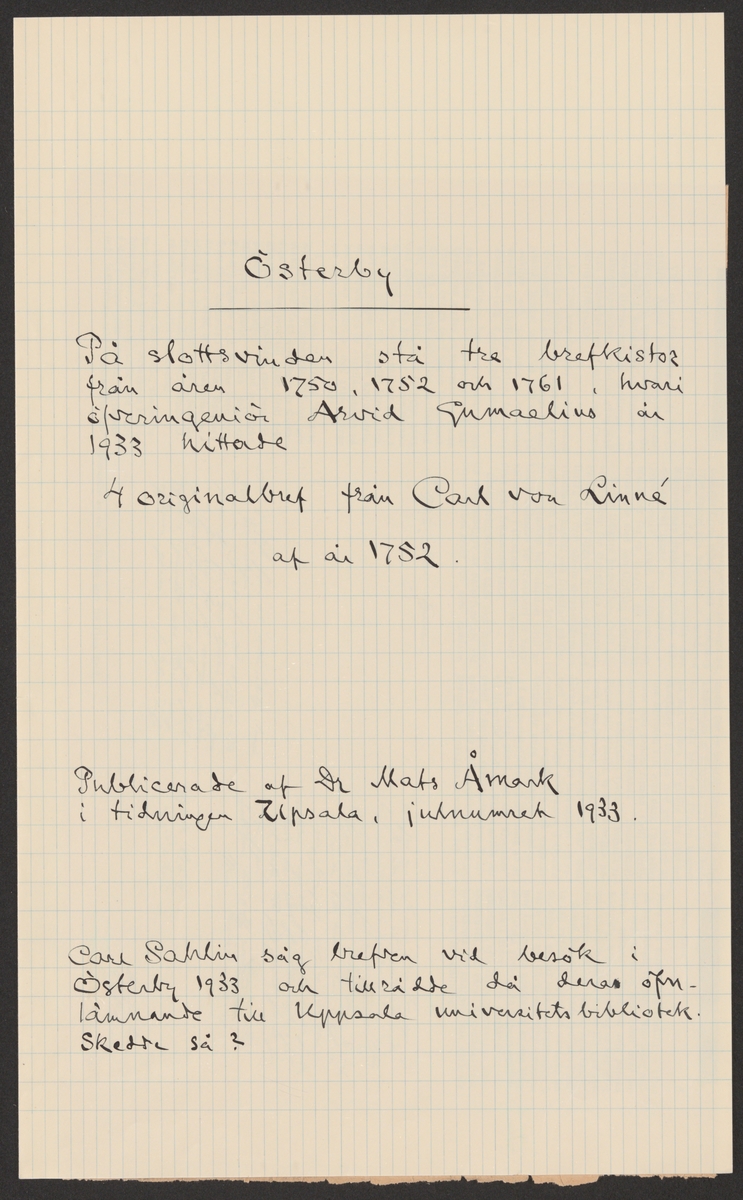 Österby
På slottsvinden stå tre brefkistor
från åren 1750, 1752 och 1761, hvari
öfveringeniör Arvid Gumaelius år
1933 hittade
4 originalbref från Carl von Linné
af år 1752.
Publicerade af Dr Mats Åmark
i tidningen Upsala, julnumret 1933.
Carl Sahlin såg brefven vid besök i
Österby 1933 och tillrådde då deras öfver-
lämnande till Uppsala universitetsbibliotek.
Skedde så?